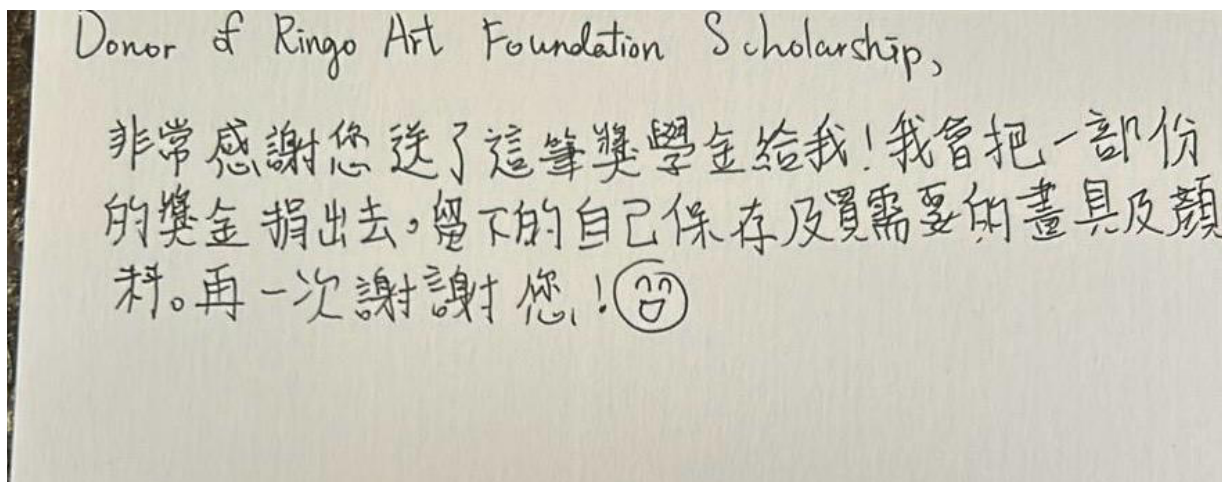 Donor of Ringo Art Foundation Scholarship,
非常感謝您送了這筆獎學金給我!我會把一部份
的獎金捐出去。留下的自己保存及買需要的畫具及顏
料。再一次謝謝您!